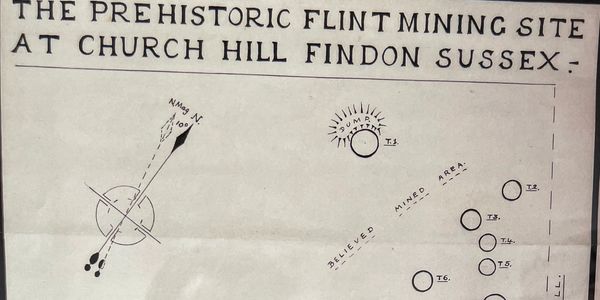 THE PREHISTORIC FLINT MINING SITE
AT CHURCH HILL FINDON SUSSEX:-
N.Mag N.
10°
DUMP
T.1.
BELIEVED MINED AREA.
T.2.
T.3.
T.4.
T.5.
T6.
LL.